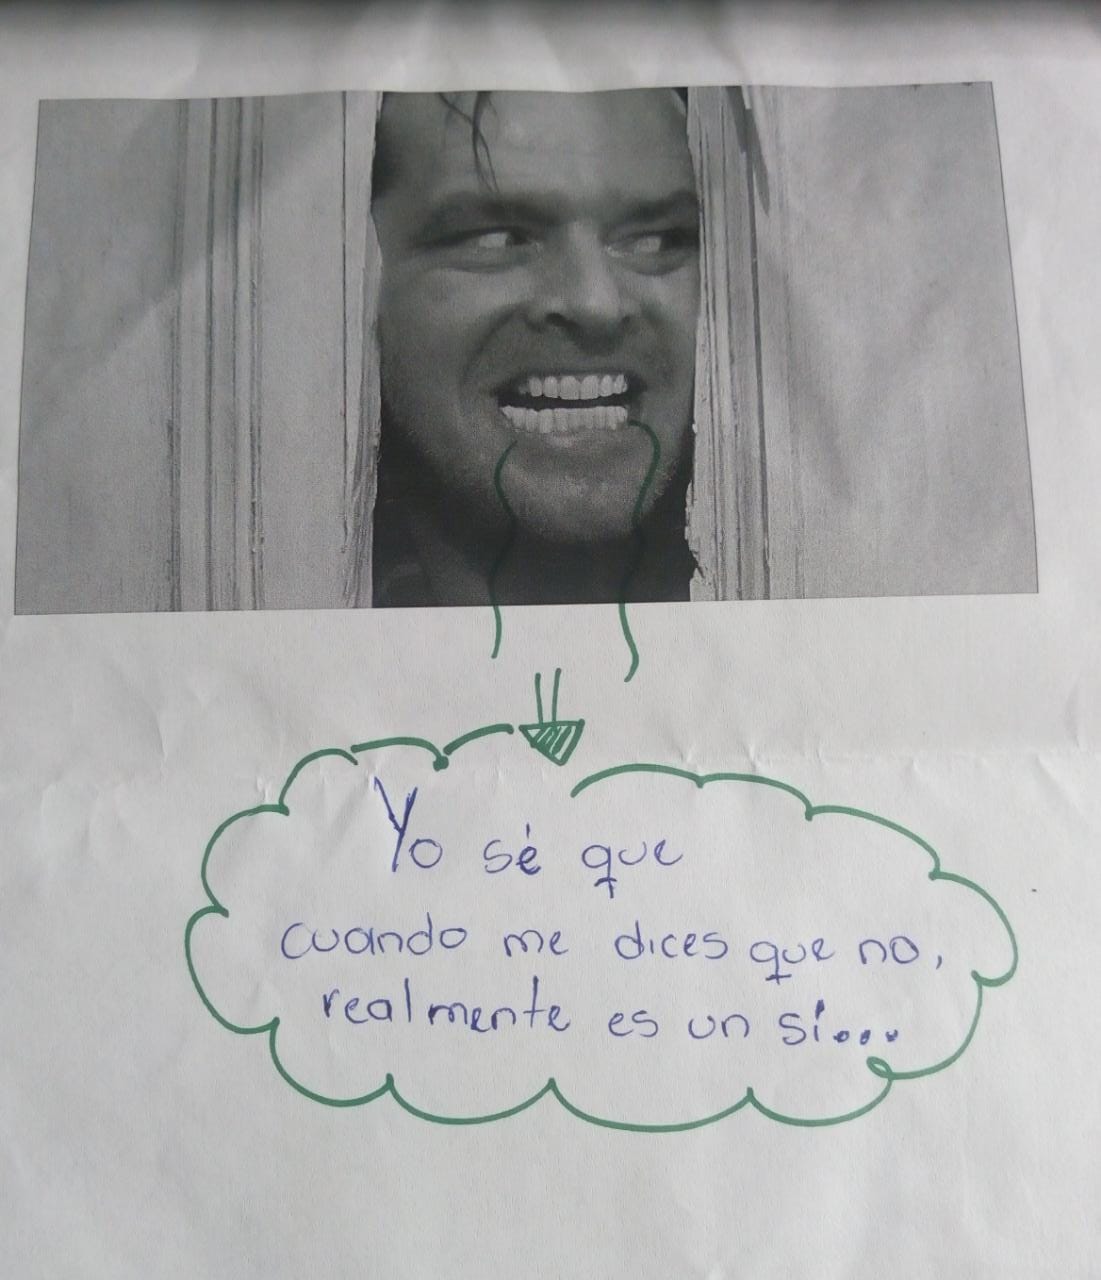 Yo sé que
cuando me dices que no,
realmente es un sí...